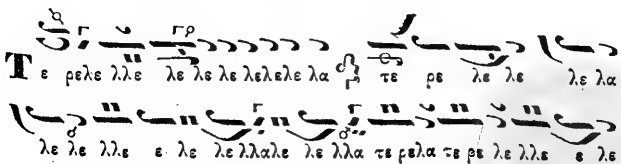 Τε ρελε λλε λε λε λε λελελε λα τε ρε λε λε λε λα
λε λε λλε ε λε λε λλαλε λε λλα τε ρελα τε ρε λε λλε ε λε